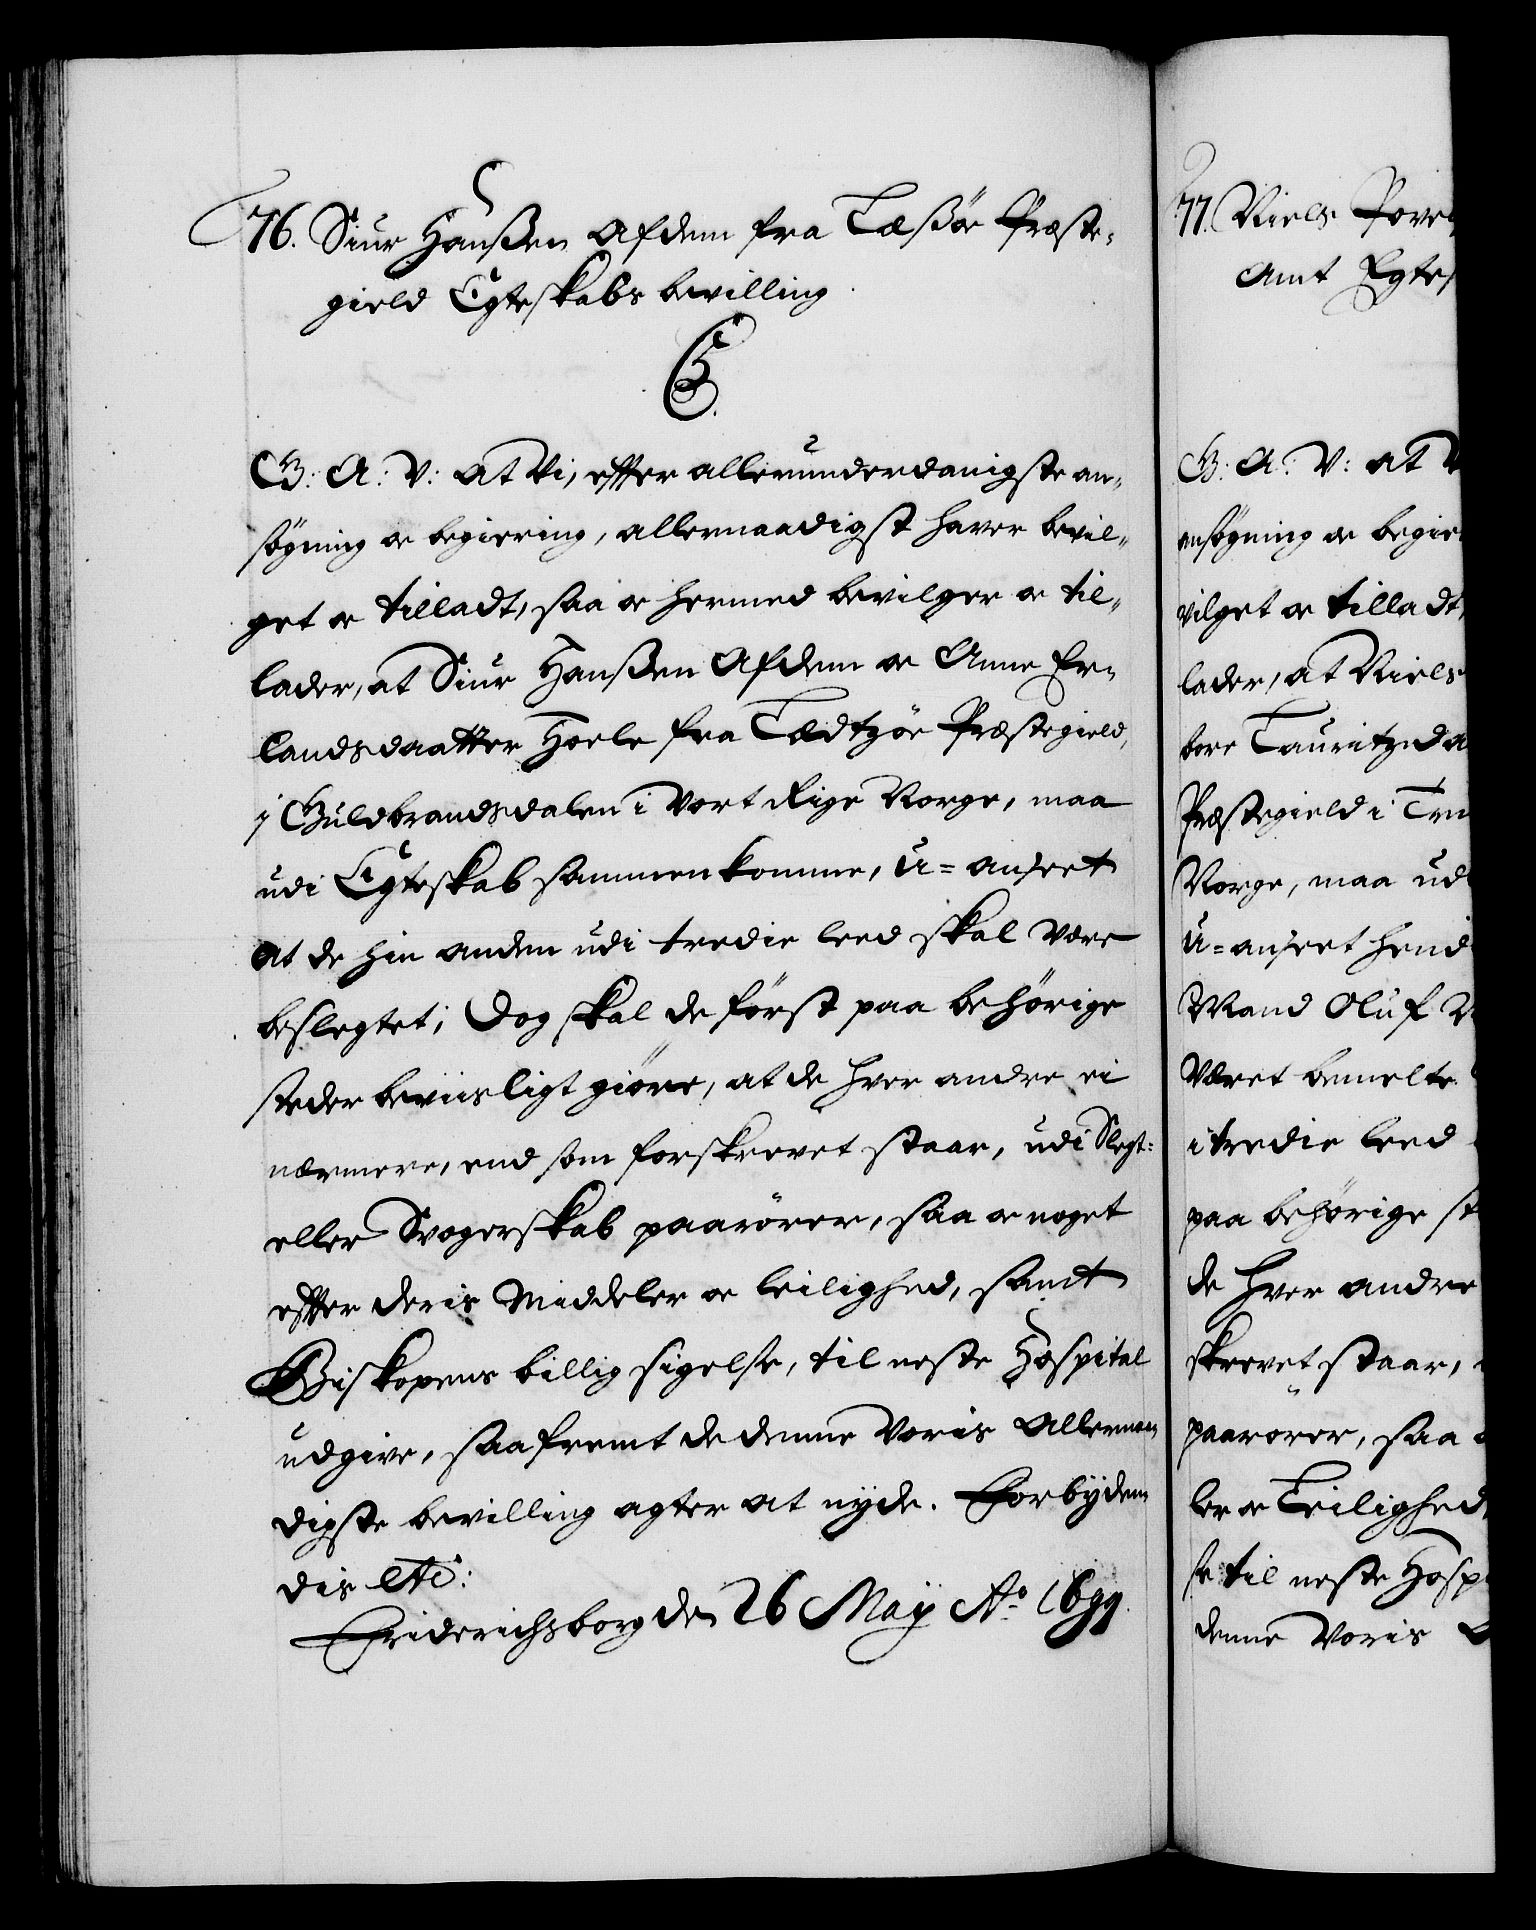 76. Siur Hanßen Afdem fra Læßöe Præste-
gield Egteskabs bevilling.
C5.
G: A: V: at Vi, effter allerunderdanigste an-
søgning oc begiering, allernaadigst haver bevil-
get oc tilladt, saa oc hermed bevilger oc til-
lader, at Siur Hanßen Afdem oc Anne Er-
landsdaatter Hoele fra Lædtzöe Præstegield,
i Guldbrandsdalen i Vort Rige Norge, maa
udi Egteskab sammenkomme, u-anseet
at de hin anden udi tredie leed skal være
beslegtet; Dog skal de först paa behörige
steder beviisligt giöre, at de hver andre ei
nærmere, end som forskrevet staar, udi Slegt-
eller Svogerskab paarörer, saa oc noget
effter deris Middeler oc leilighed, samt
Biskopens billig sigelse, til neste Hospital
udgive, saafremt de denne Voris Allernaa-
digste bevilling agter at nyde. Forbyden-
dis etc:
Friderichsborg den 26 Maÿ Ao 1699.
77. Niels Povel
Amt Egtes
G: A: V: at V
ansögning oc begie
vilget oc tilladt,
lader, at Niels
bore Lauritzda
Præstegield i Tru
Norge, maa ud
u-anseet hend
Mand Oluf N
Været bemelte
i tredie leed
paa behörige st
de hver andre
skrevet staar,
paarörer, saa
ler oc Leilighed
se til neste Hosp
denne Voris